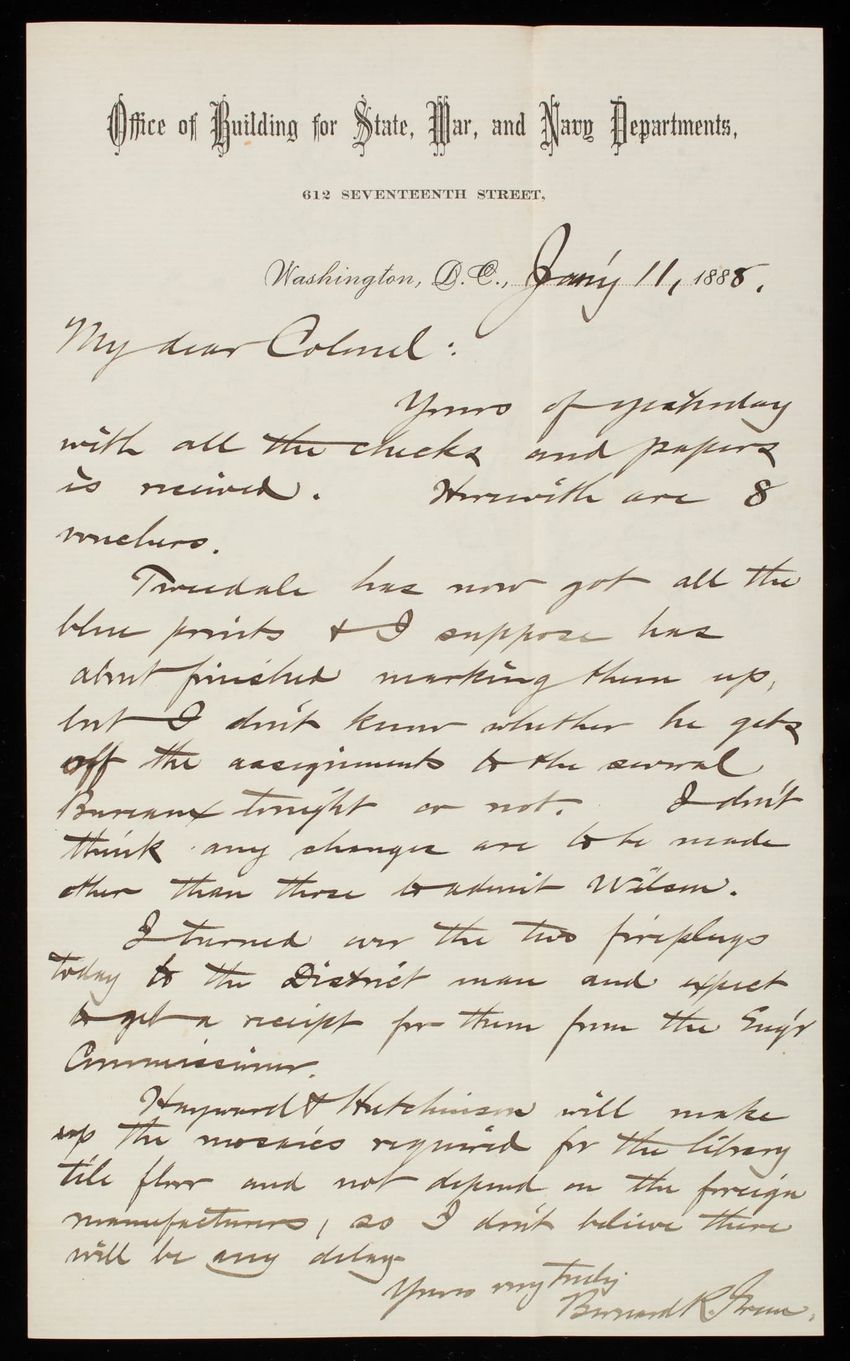 Office of Building for State, War, and Navy Departments,
612 SEVENTEENTH STREET,
Washington, D.C., Jan'y 11, 1888.
My dear Colonel:
Yours of yesterday
with all the checks and papers
is received. Herewith are 8
vouchers.
Tweedale has now got all the
blue prints & I suppose has
about finished marking them up,
but I don't know whether he gets
off the assignments to the several
Bureaux tonight or not. I don't
think any changes are to be made
other than those to admit Wilson.
I turned over the two fireplugs
today to the District man and expect
to get a receipt for them from the Eng'r
Commissioner.
Hayward & Hutchinson will make
up the mosaics required for the library
tile floor and not depend on the foreign
manufacturers, so I don't believe there
will be any delay
Yours very truly
Bernard R. Green.